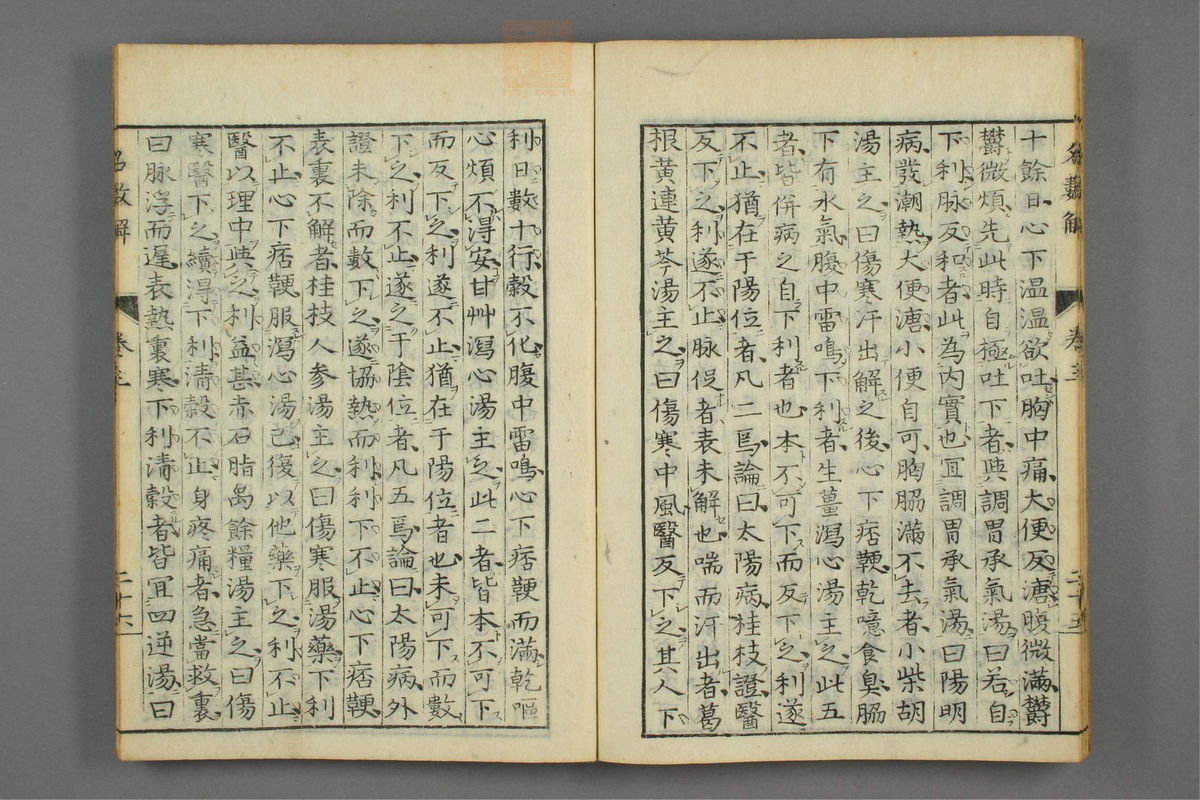 十餘日心下温温欲吐胸中痛大便反溏腹微滿欝
欝微煩先此時自極吐下者與調胃承氣湯曰若自
下利脉反和者此為内實也宜調胃承氣湯曰陽明
病發潮熱大便溏小便自可胸脇滿不去者小柴胡
湯主之曰傷寒汗出解之後心下痞鞕乾噫食臭脇
下有水氣腹中雷鳴下利者生薑瀉心湯主之此五
者皆併病之自下利者也本不可下而反下之利遂
不止猶在于陽位者凡二焉論曰太陽病桂枝證醫
反下之利遂不止脉促者表未解也喘而汗出者葛
根黄連黄芩湯主之曰傷寒中風醫反下之其人下
名數解
卷三
二十五
利日數十行穀不化腹中雷鳴心下痞鞕而滿乾嘔
心煩不得安甘艸瀉心湯主之此二者皆本不可下
而反下之利遂不止猶在于陽位者也未可下而數
下之利不止遂之于陰位者凡五焉論曰太陽病外
證未除而數下之遂協熱而利利下不止心下痞鞕
表裏不解者桂枝人參湯主之曰傷寒服湯藥下利
不止心下痞鞕服瀉心湯已復以他藥下之利不止
醫以理中與之利益甚赤石脂禹餘糧湯主之曰傷
寒醫下之續得下利清穀不止身疼痛者急當救裏
曰脉浮而遲表熱裏寒下利清穀者皆宜四逆湯曰
名數解
二十六